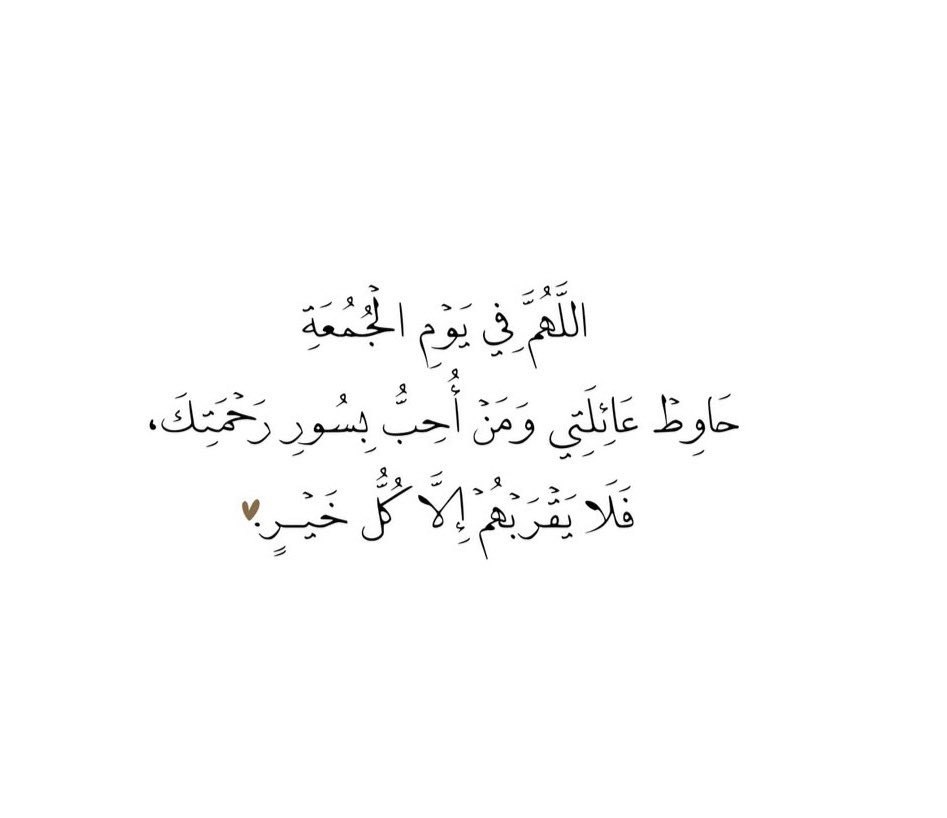 اللَّهُمَّ فِي يَوْمِ الْجُمُعَةِ
حَاوِطْ عَائِلَتِي وَمَنْ أُحِبُّ بِسُورِ رَحْمَتِكَ،
فَلَا يَقْرَبْهُمْ إِلَّا كُلُّ خَيْـرٍ.